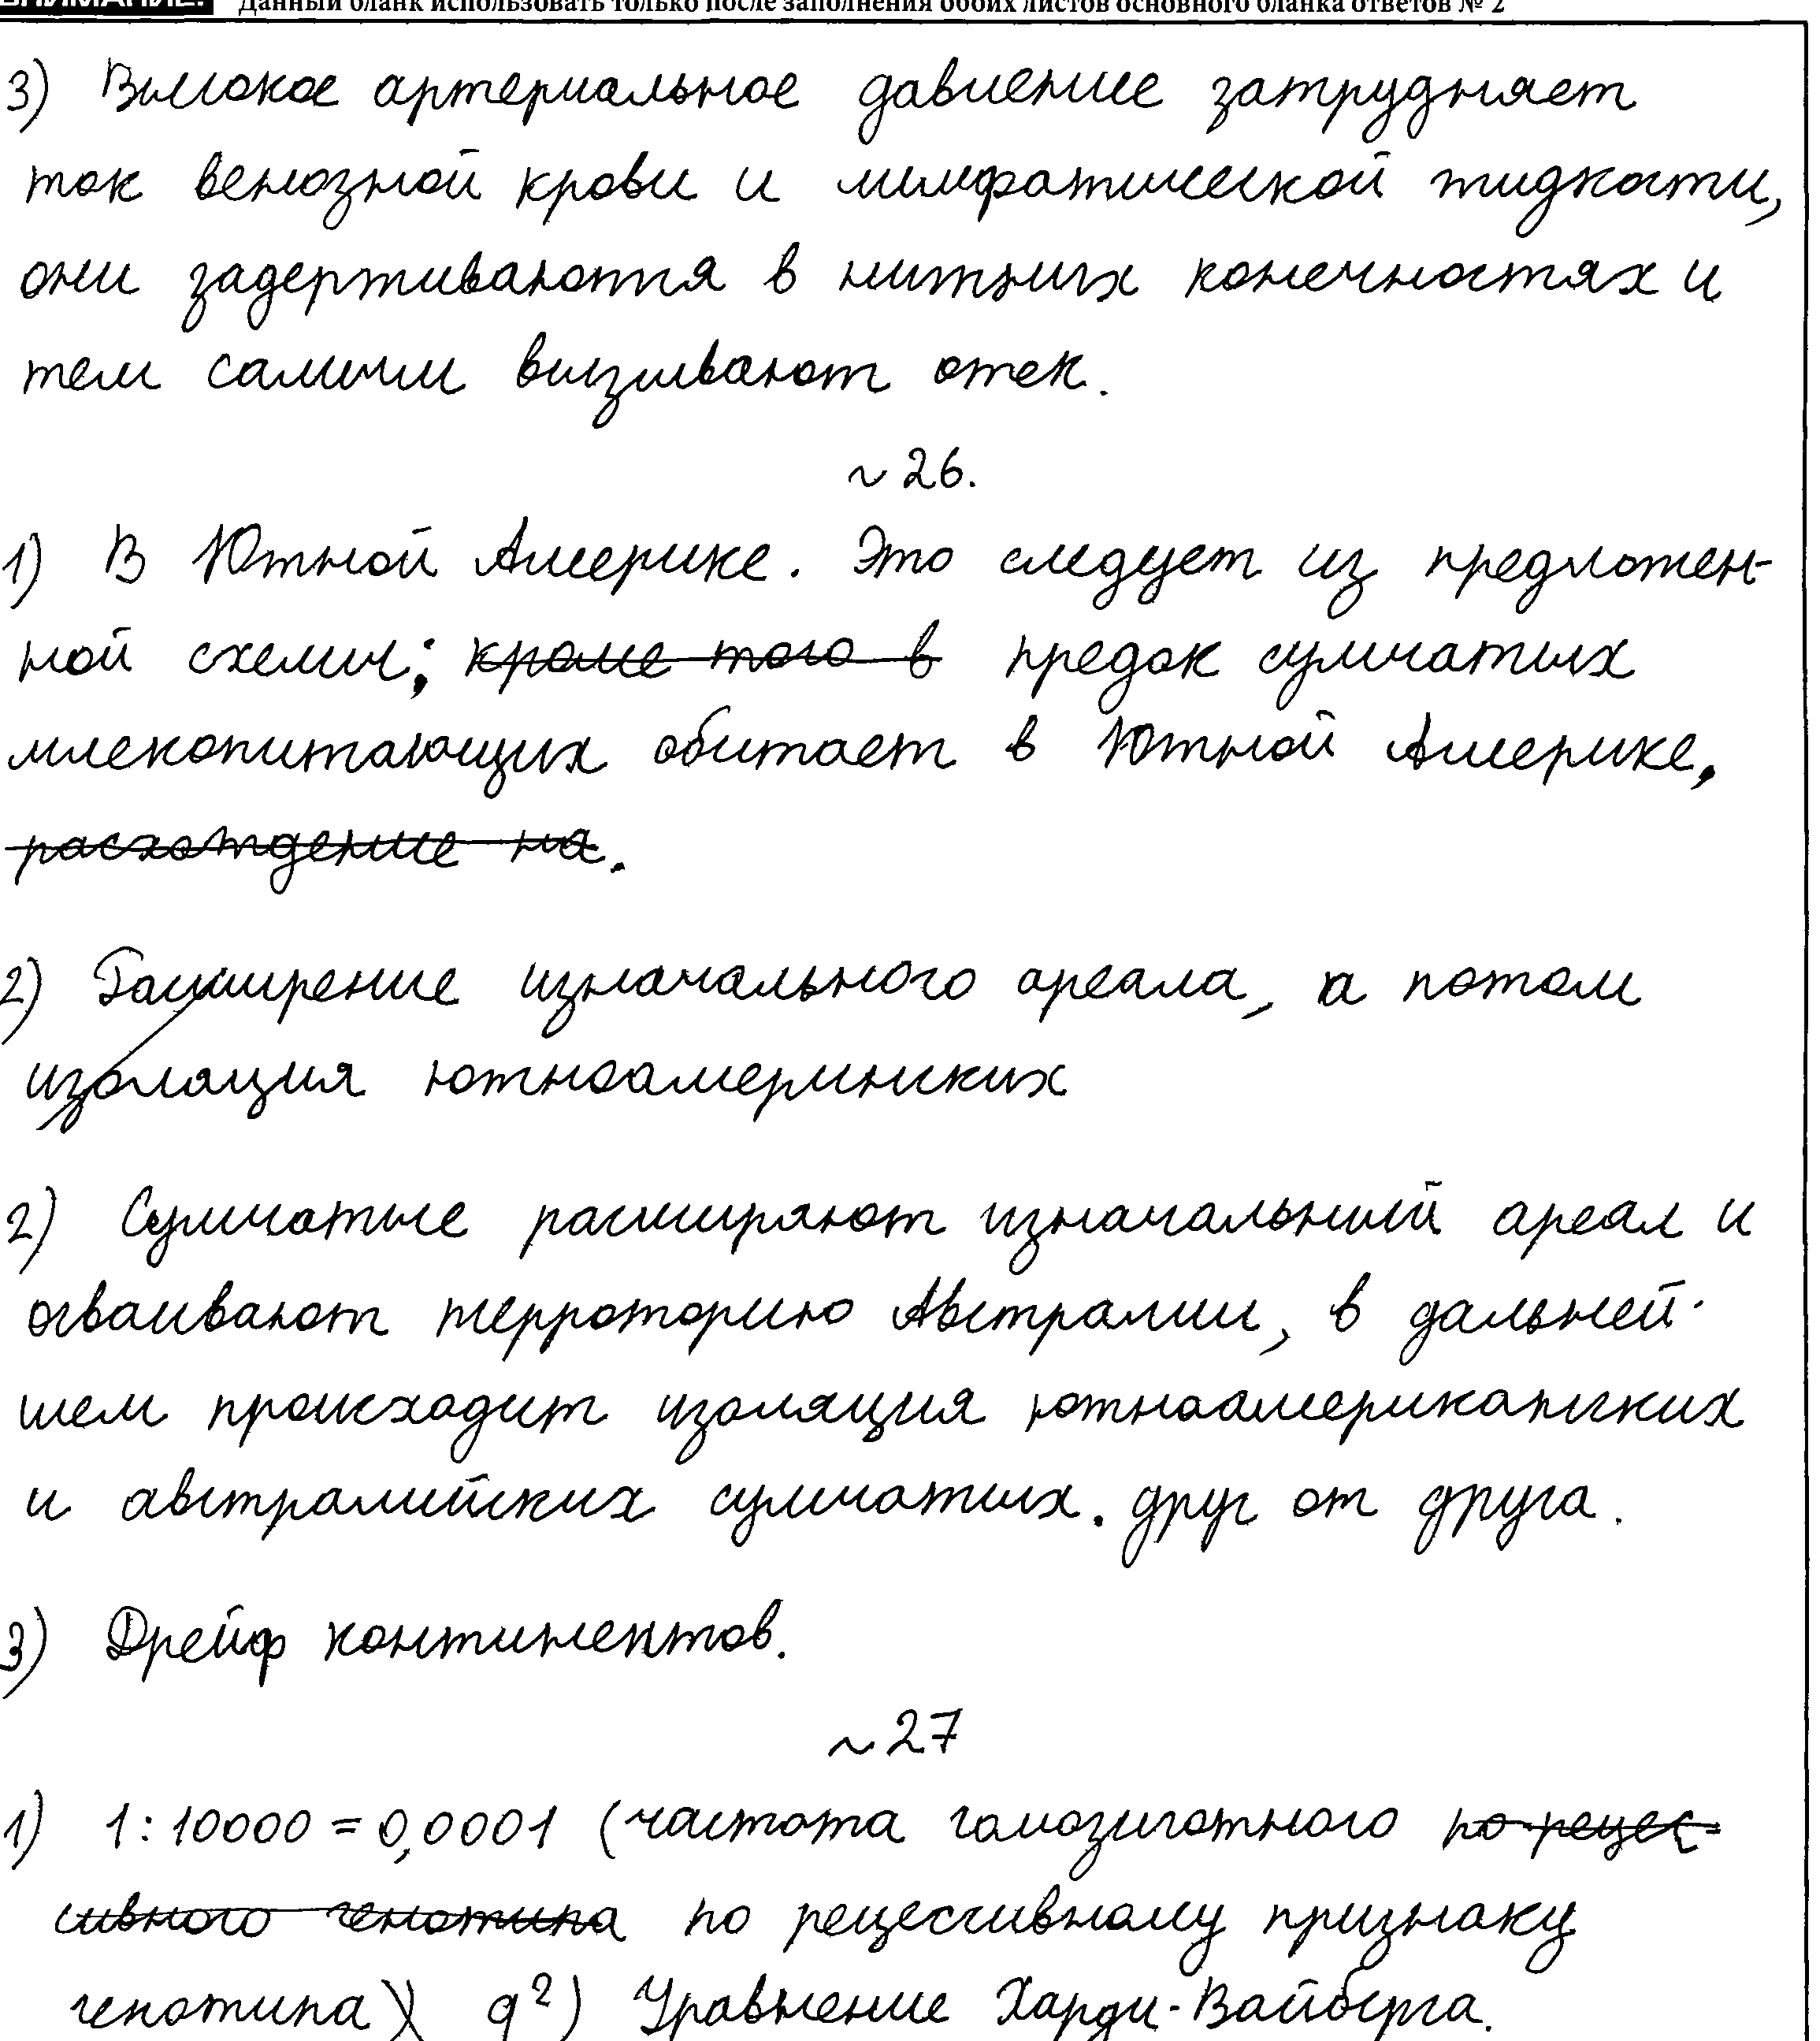 ВНИМАНИЕ! Данный бланк использовать только после заполнения обоих листов основного бланка ответов № 2
3) Высокое артериальное давление затрудняет
ток венозной крови и лимфатической жидкости,
они задерживаются в нижних конечностях и
тем самым вызывают отек.
~ 26.
1) В Южной Америке. Это следует из предложен-
ной схемы; кроме того в предок сумчатых
млекопитающих обитает в Южной Америке.
расхождение на.
2) Расширение изначального ареала, а потом
изоляция южноамеринских
2) Сумчатые расширяют изначальный ареал и
осваивают терроторию Австралии, в дальней-
шем происходит изоляция южноамериканских
и австралийских сумчатых. друг от друга.
3) Дрейф континентов.
~ 27
1) 1:10000 = 0,0001 (частота гомозиготного по рецес-
сивного генотипа по рецессивному признаку
генотипа) q²) Уравнение Харди-Вайберга.